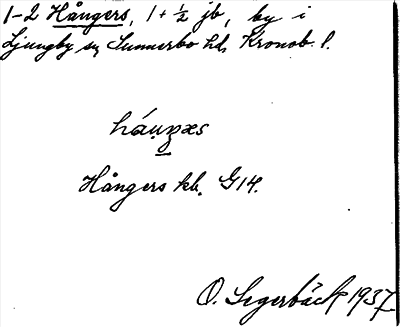 1-2 Hångers, 1 + ½ jb, by i
Ljungby sn, Sunnerbo hd, Kronob. l.
Hångers kb. G14.
O. Segerbäck 1937